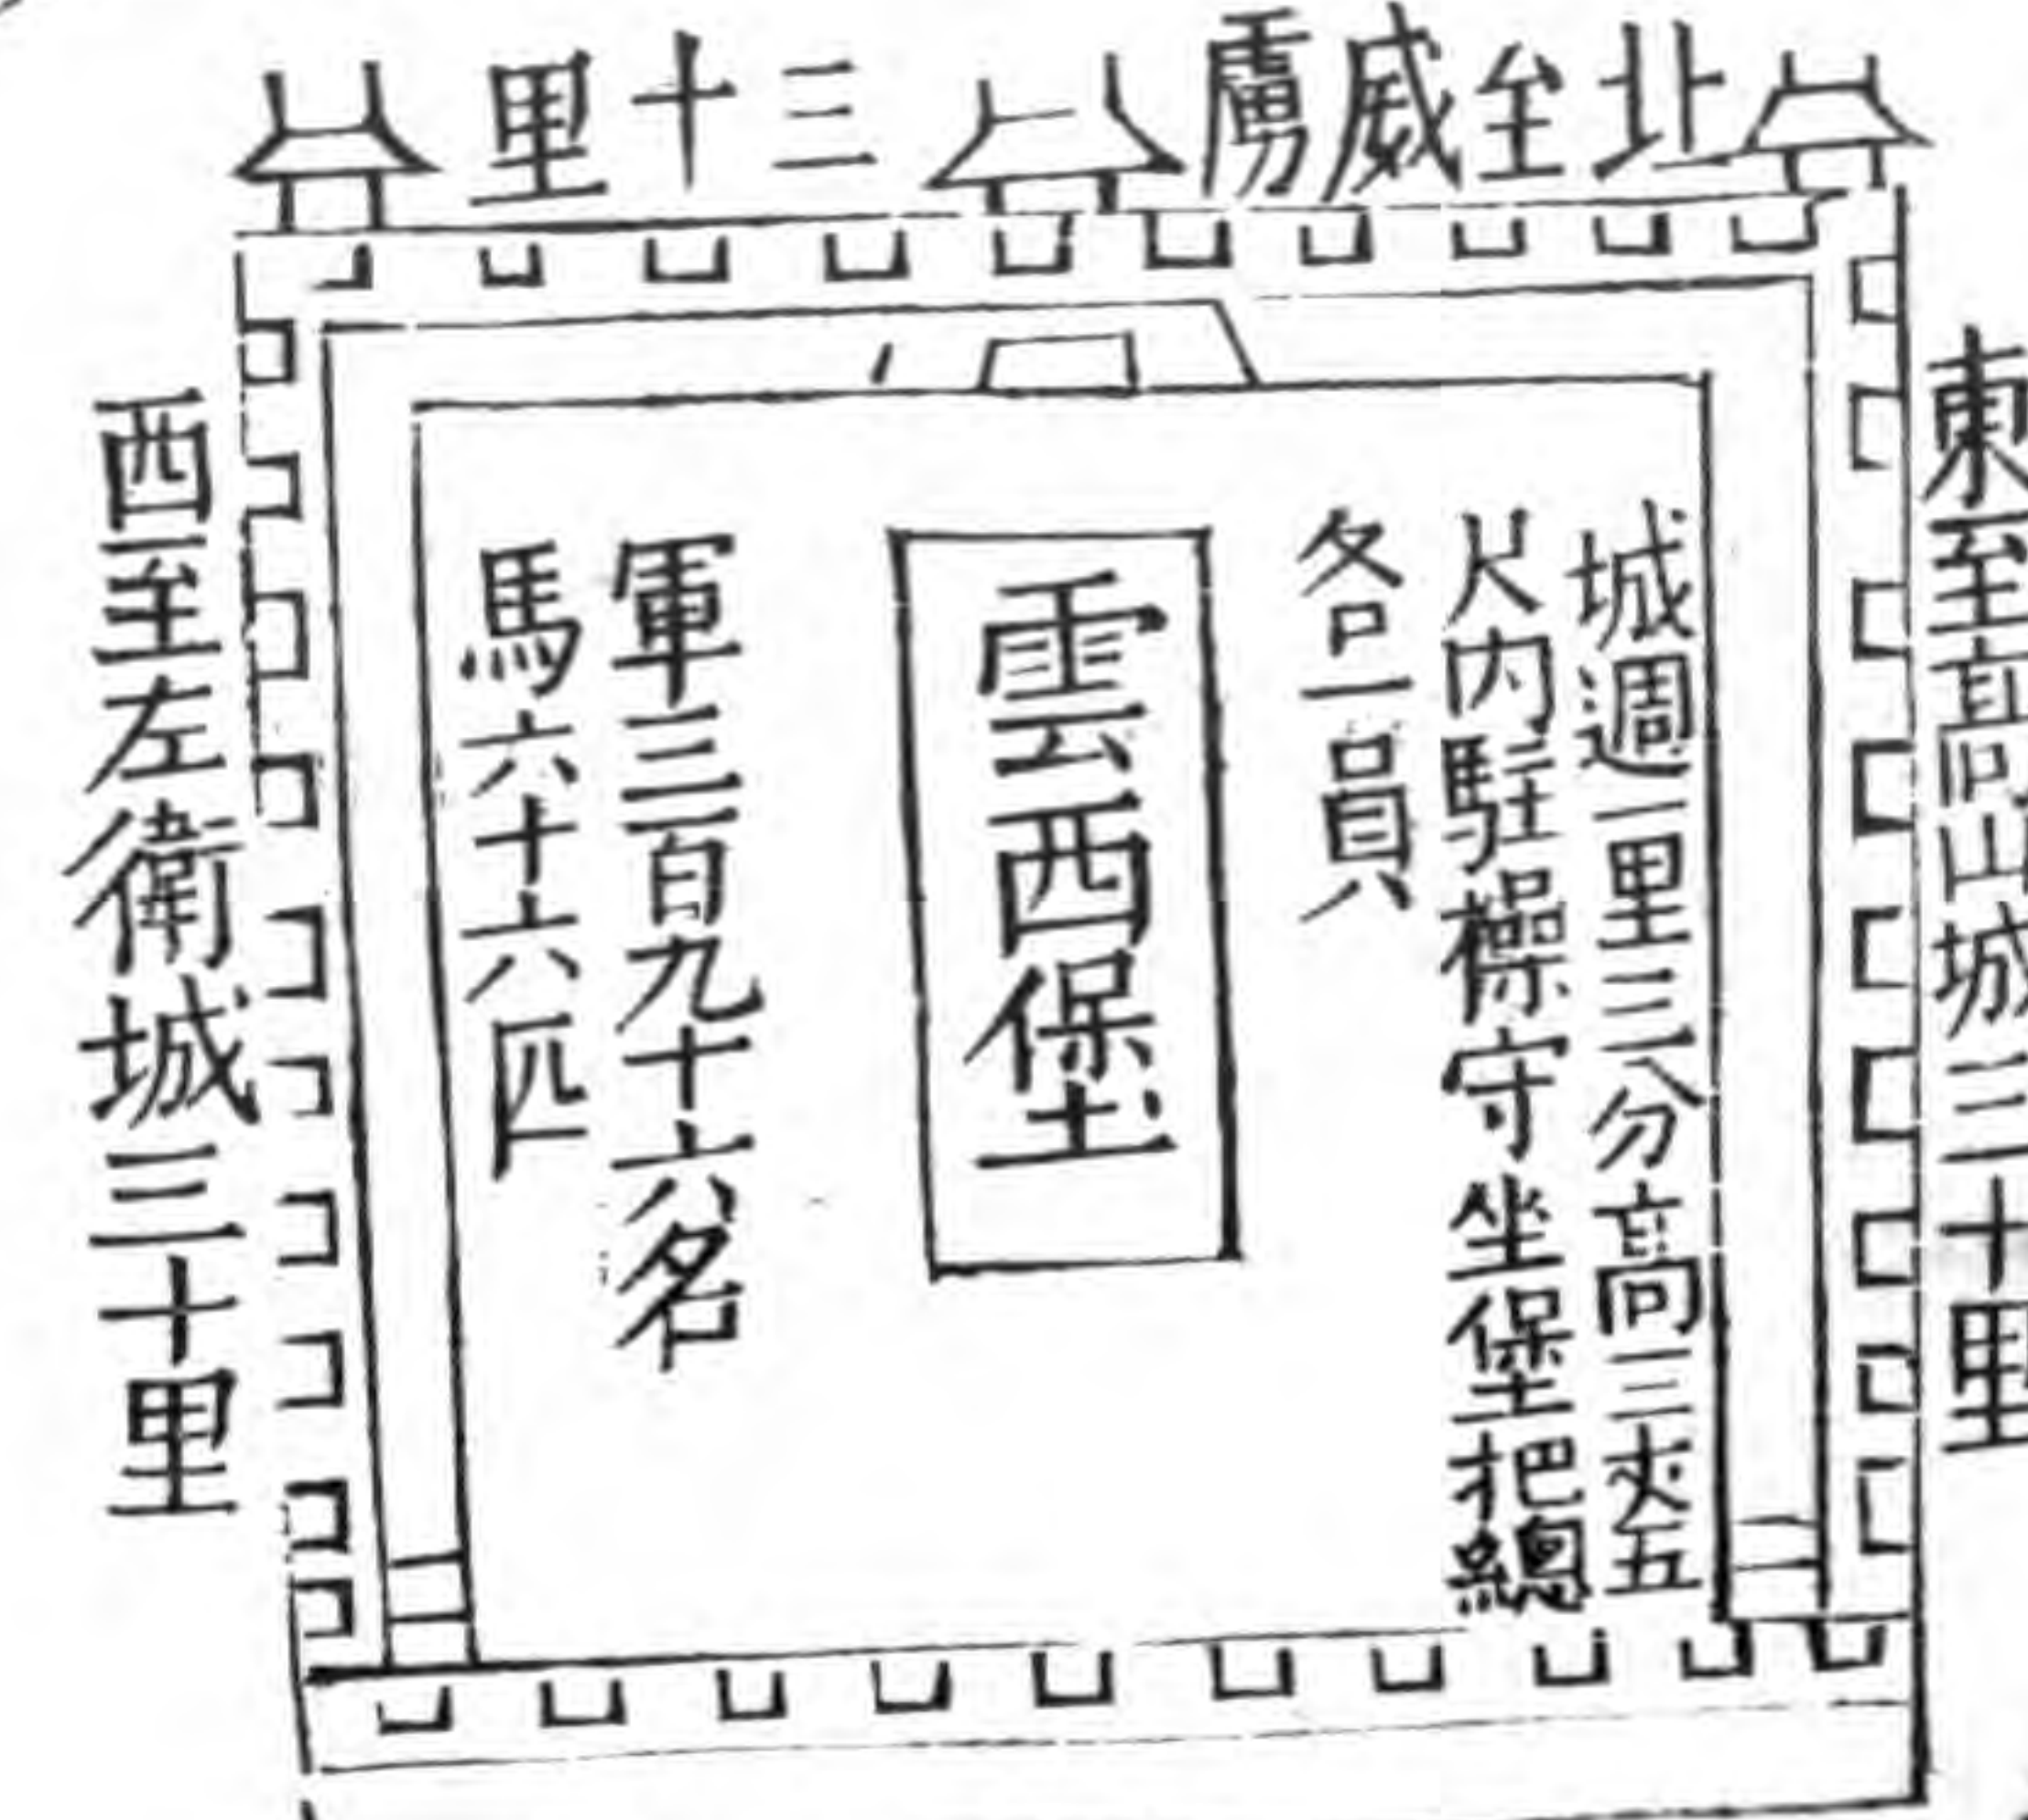 北至威虜三十里
東至高山城三十里
城週一里三分高三丈五
尺内駐操守坐堡把總
各一員
雲西堡
軍三百九十六名
馬六十六匹
西至左衛城三十里